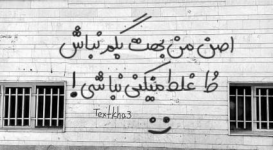 اصن من بهت بگم نباش
ط غلط میکنی نباشی!
Textkha3